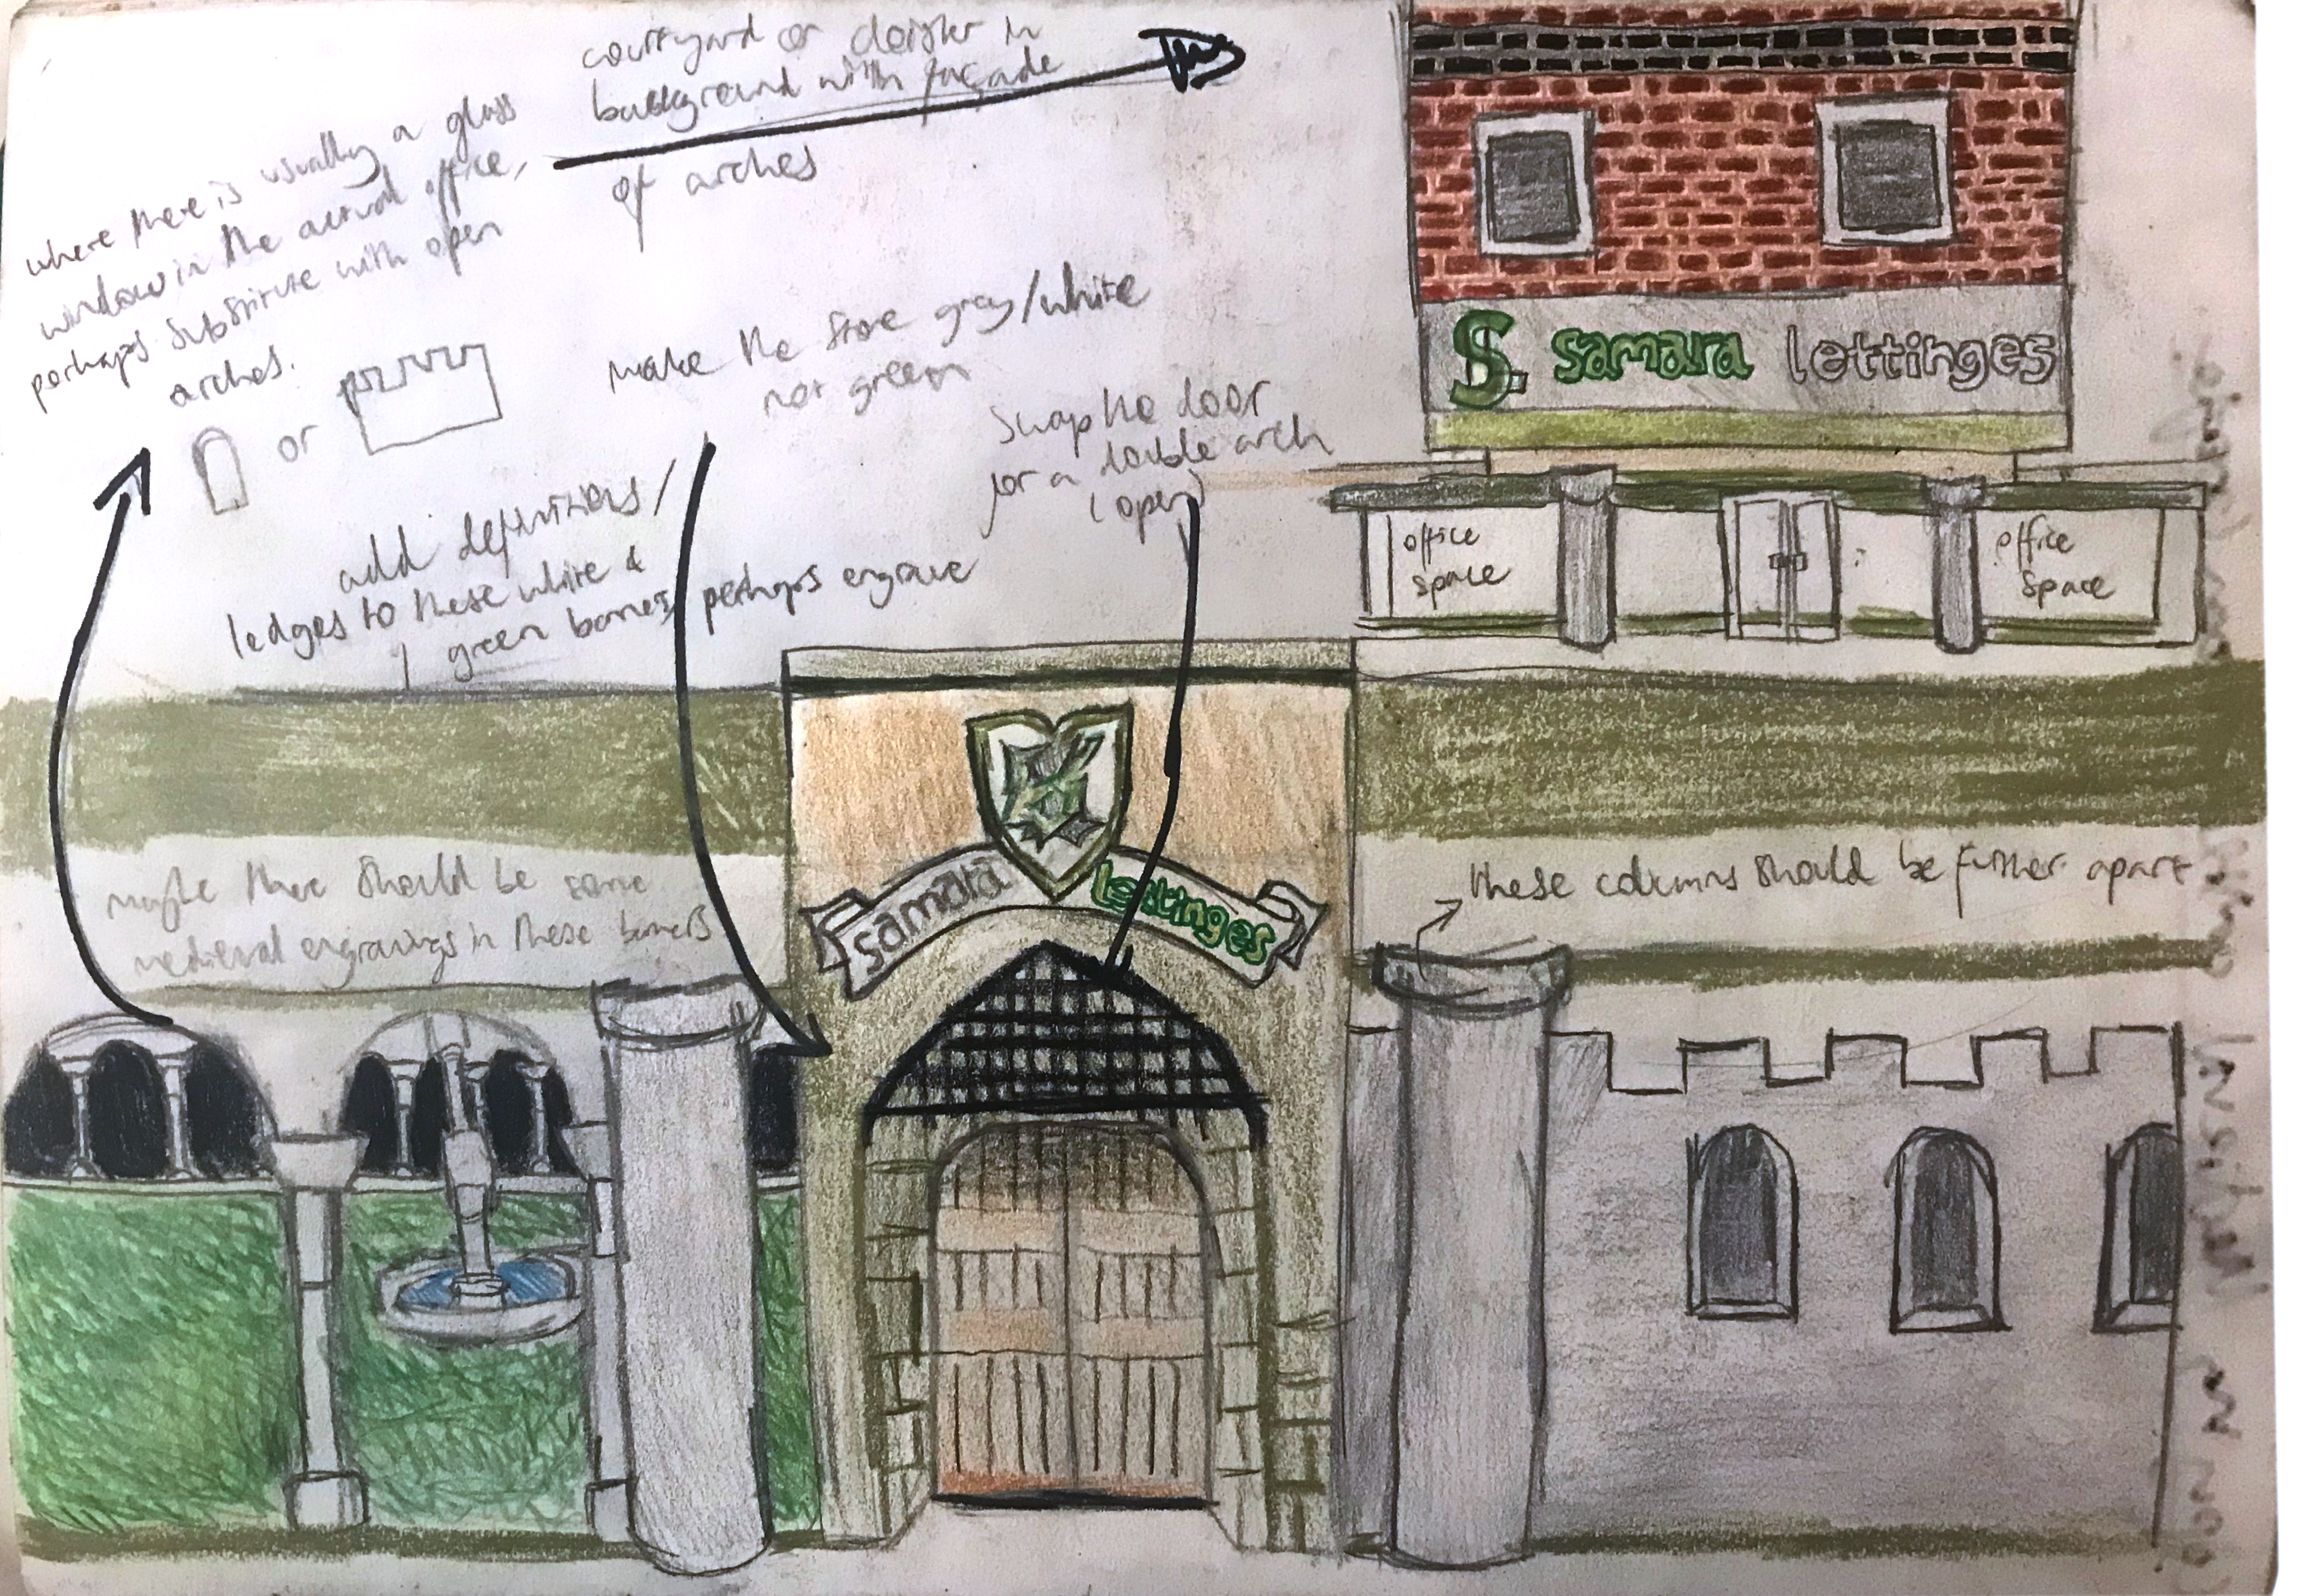 courtyard or cloister in
background with façade
of arches
where there is usually a glass
window in the actual office,
perhaps substitute with open
arches.
or
make the stone grey/white
not green
Swap the door
for a double arch
(open)
add definitions/
ledges to these white &
green barriers, perhaps engrave
S. samara lettinges
office
space
office
space
maybe there should be some
medieval engravings in these barriers
samara lettinges
these columns should be further apart